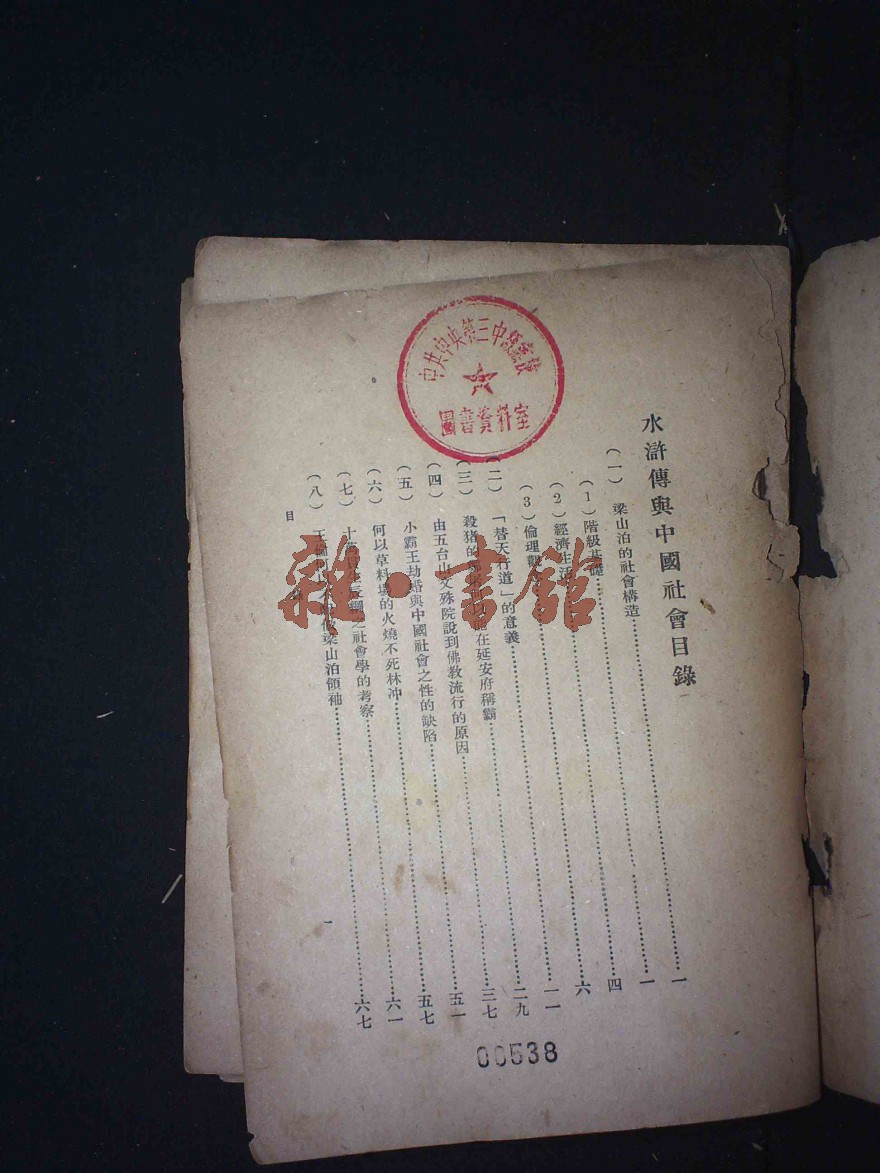 中共中央第三中級黨校
圖書資料室
水滸傳與中國社會目錄
(一) 梁山泊的社會構造……一
(1) 階級基礎……一
(2) 經濟生活……四
(3) 倫理觀……六
(二) 「替天行道」的意義……一一
(三) 殺猪的 能在延安府稱霸……二九
(四) 由五台山文殊院說到佛教流行的原因……三七
(五) 小霸王劫婚與中國社會之性的缺陷……五一
(六) 何以草料場的火燒不死林冲……五七
(七) 十 之社會學的考察……六一
(八) 王倫 做梁山泊領袖……六七
目
一
00538
雜·書館